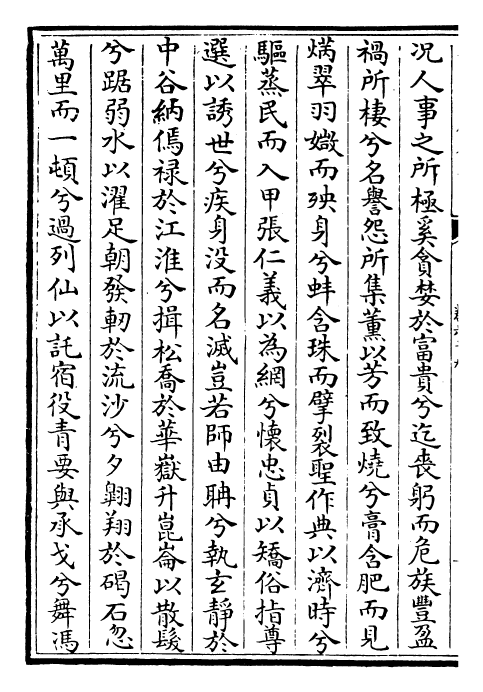 况人事之所極奚貪婪於富貴兮迄喪躬而危族豐盈
禍所棲兮名譽怨所集薰以芳而致燒兮膏含肥而見
焫翠羽媺而殃身兮蚌含珠而擘裂聖作典以濟時兮
驅蒸民而入甲張仁義以為網兮懷忠貞以矯俗指尊
選以誘世兮疾身没而名滅豈若師由聃兮執玄靜於
中谷納傿禄於江淮兮揖松喬於華嶽升崑崙以散髮
兮踞弱水以濯足朝發軔於流沙兮夕翺翔於碣石忽
萬里而一頓兮過列仙以託宿役青要與承戈兮舞馮